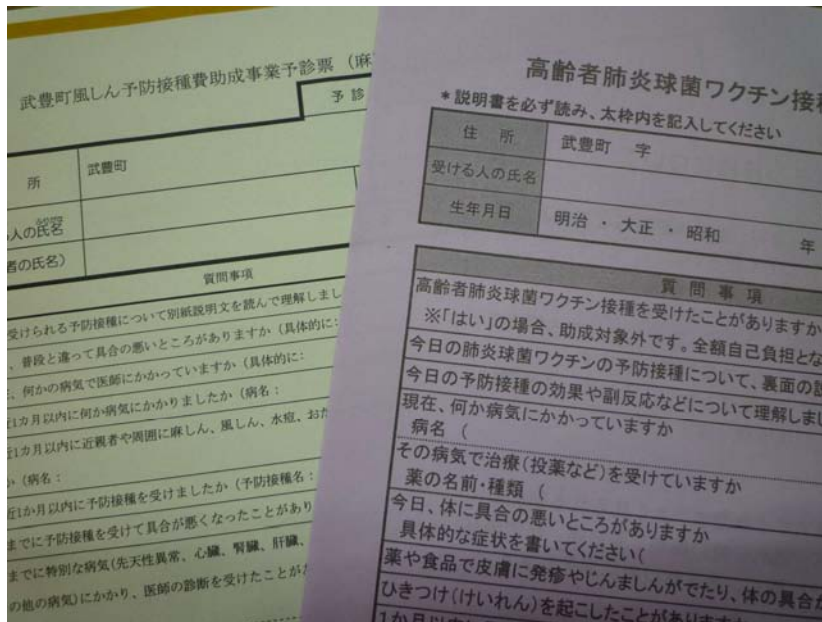 武豊町風しん予防接種費助成事業予診票（麻
予 診
所
武豊町
人の氏名
者の氏名）
質問事項
受けられる予防接種について別紙説明文を読んで理解しまし
、普段と違って具合の悪いところがありますか（具体的に：
、何かの病気で医師にかかっていますか（具体的に：
近1カ月以内に何か病気にかかりましたか（病名：
近1カ月以内に近親者や周囲に麻しん、風しん、水痘、おた
か（病名：
近1か月以内に予防接種を受けましたか（予防接種名：
までに予防接種を受けて具合が悪くなったことがあり
までに特別な病気(先天性異常、心臓、腎臓、肝臓、
の他の病気)にかかり、医師の診断を受けたことが
高齢者肺炎球菌ワクチン接種
＊説明書を必ず読み、太枠内を記入してください
住 所
武豊町 字
受ける人の氏名
生年月日
明治 ・ 大正 ・ 昭和 年
質 問 事 項
高齢者肺炎球菌ワクチン接種を受けたことがありますか
※「はい」の場合、助成対象外です。全額自己負担とな
今日の肺炎球菌ワクチンの予防接種について、裏面の説
今日の予防接種の効果や副反応などについて理解しまし
現在、何か病気にかかっていますか
病名（
その病気で治療（投薬など）を受けていますか
薬の名前・種類（
今日、体に具合の悪いところがありますか
具体的な症状を書いてください（
薬や食品で皮膚に発疹やじんましんがでたり、体の具合が
ひきつけ（けいれん）を起こしたことがありますか